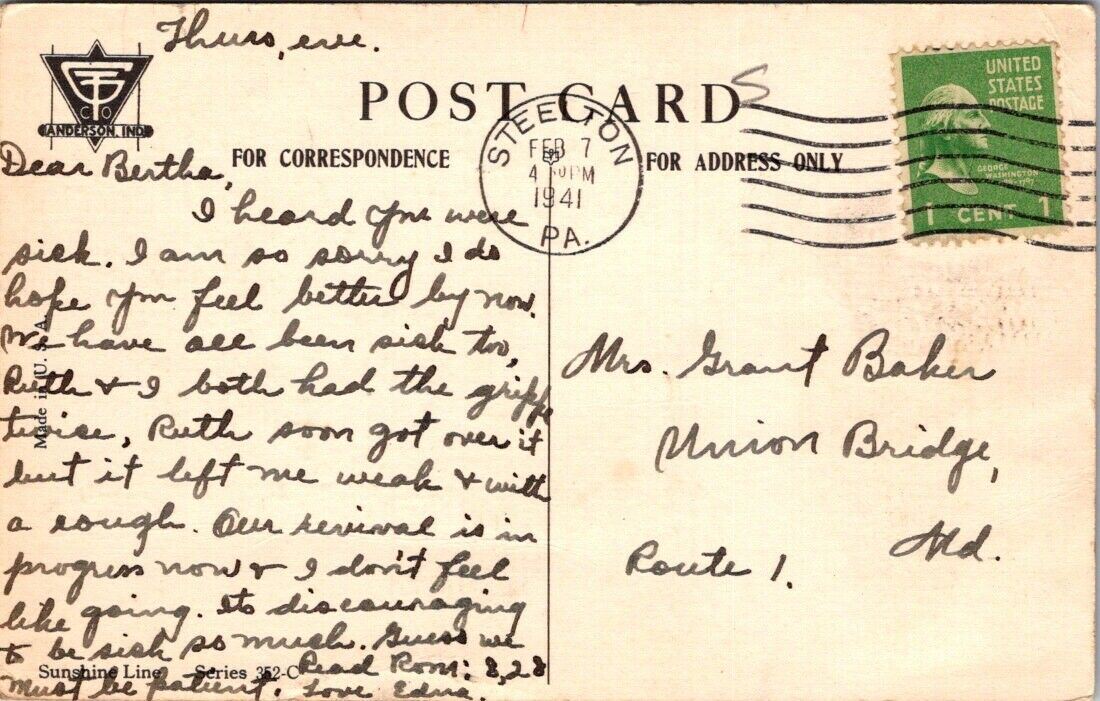 Thurs, eve.
GTS CO
ANDERSON, IND.
POST CARD
S
FOR CORRESPONDENCE
FOR ADDRESS ONLY
STEELTON
FEB 7
4 PM
1941
PA.
UNITED
STATES
POSTAGE
GEORGE
WASHINGTON
1 CENT 1
Dear Bertha,
I heard you were
sick. I am so sorry I do
hope you feel better by now.
We have all been sick too,
Ruth & I both had the grippe
twice, Ruth soon got over it
but it left me weak & with
a cough. Our revival is in
progress now & I don't feel
like going. Its discouraging
to be sick so much. Guess we
must be patient. Read Rom: 8,28
Love Edna
Made in U.S.A.
Sunshine Line Series 352-C
Mrs. Grant Baker
Union Bridge,
Md.
Route 1.